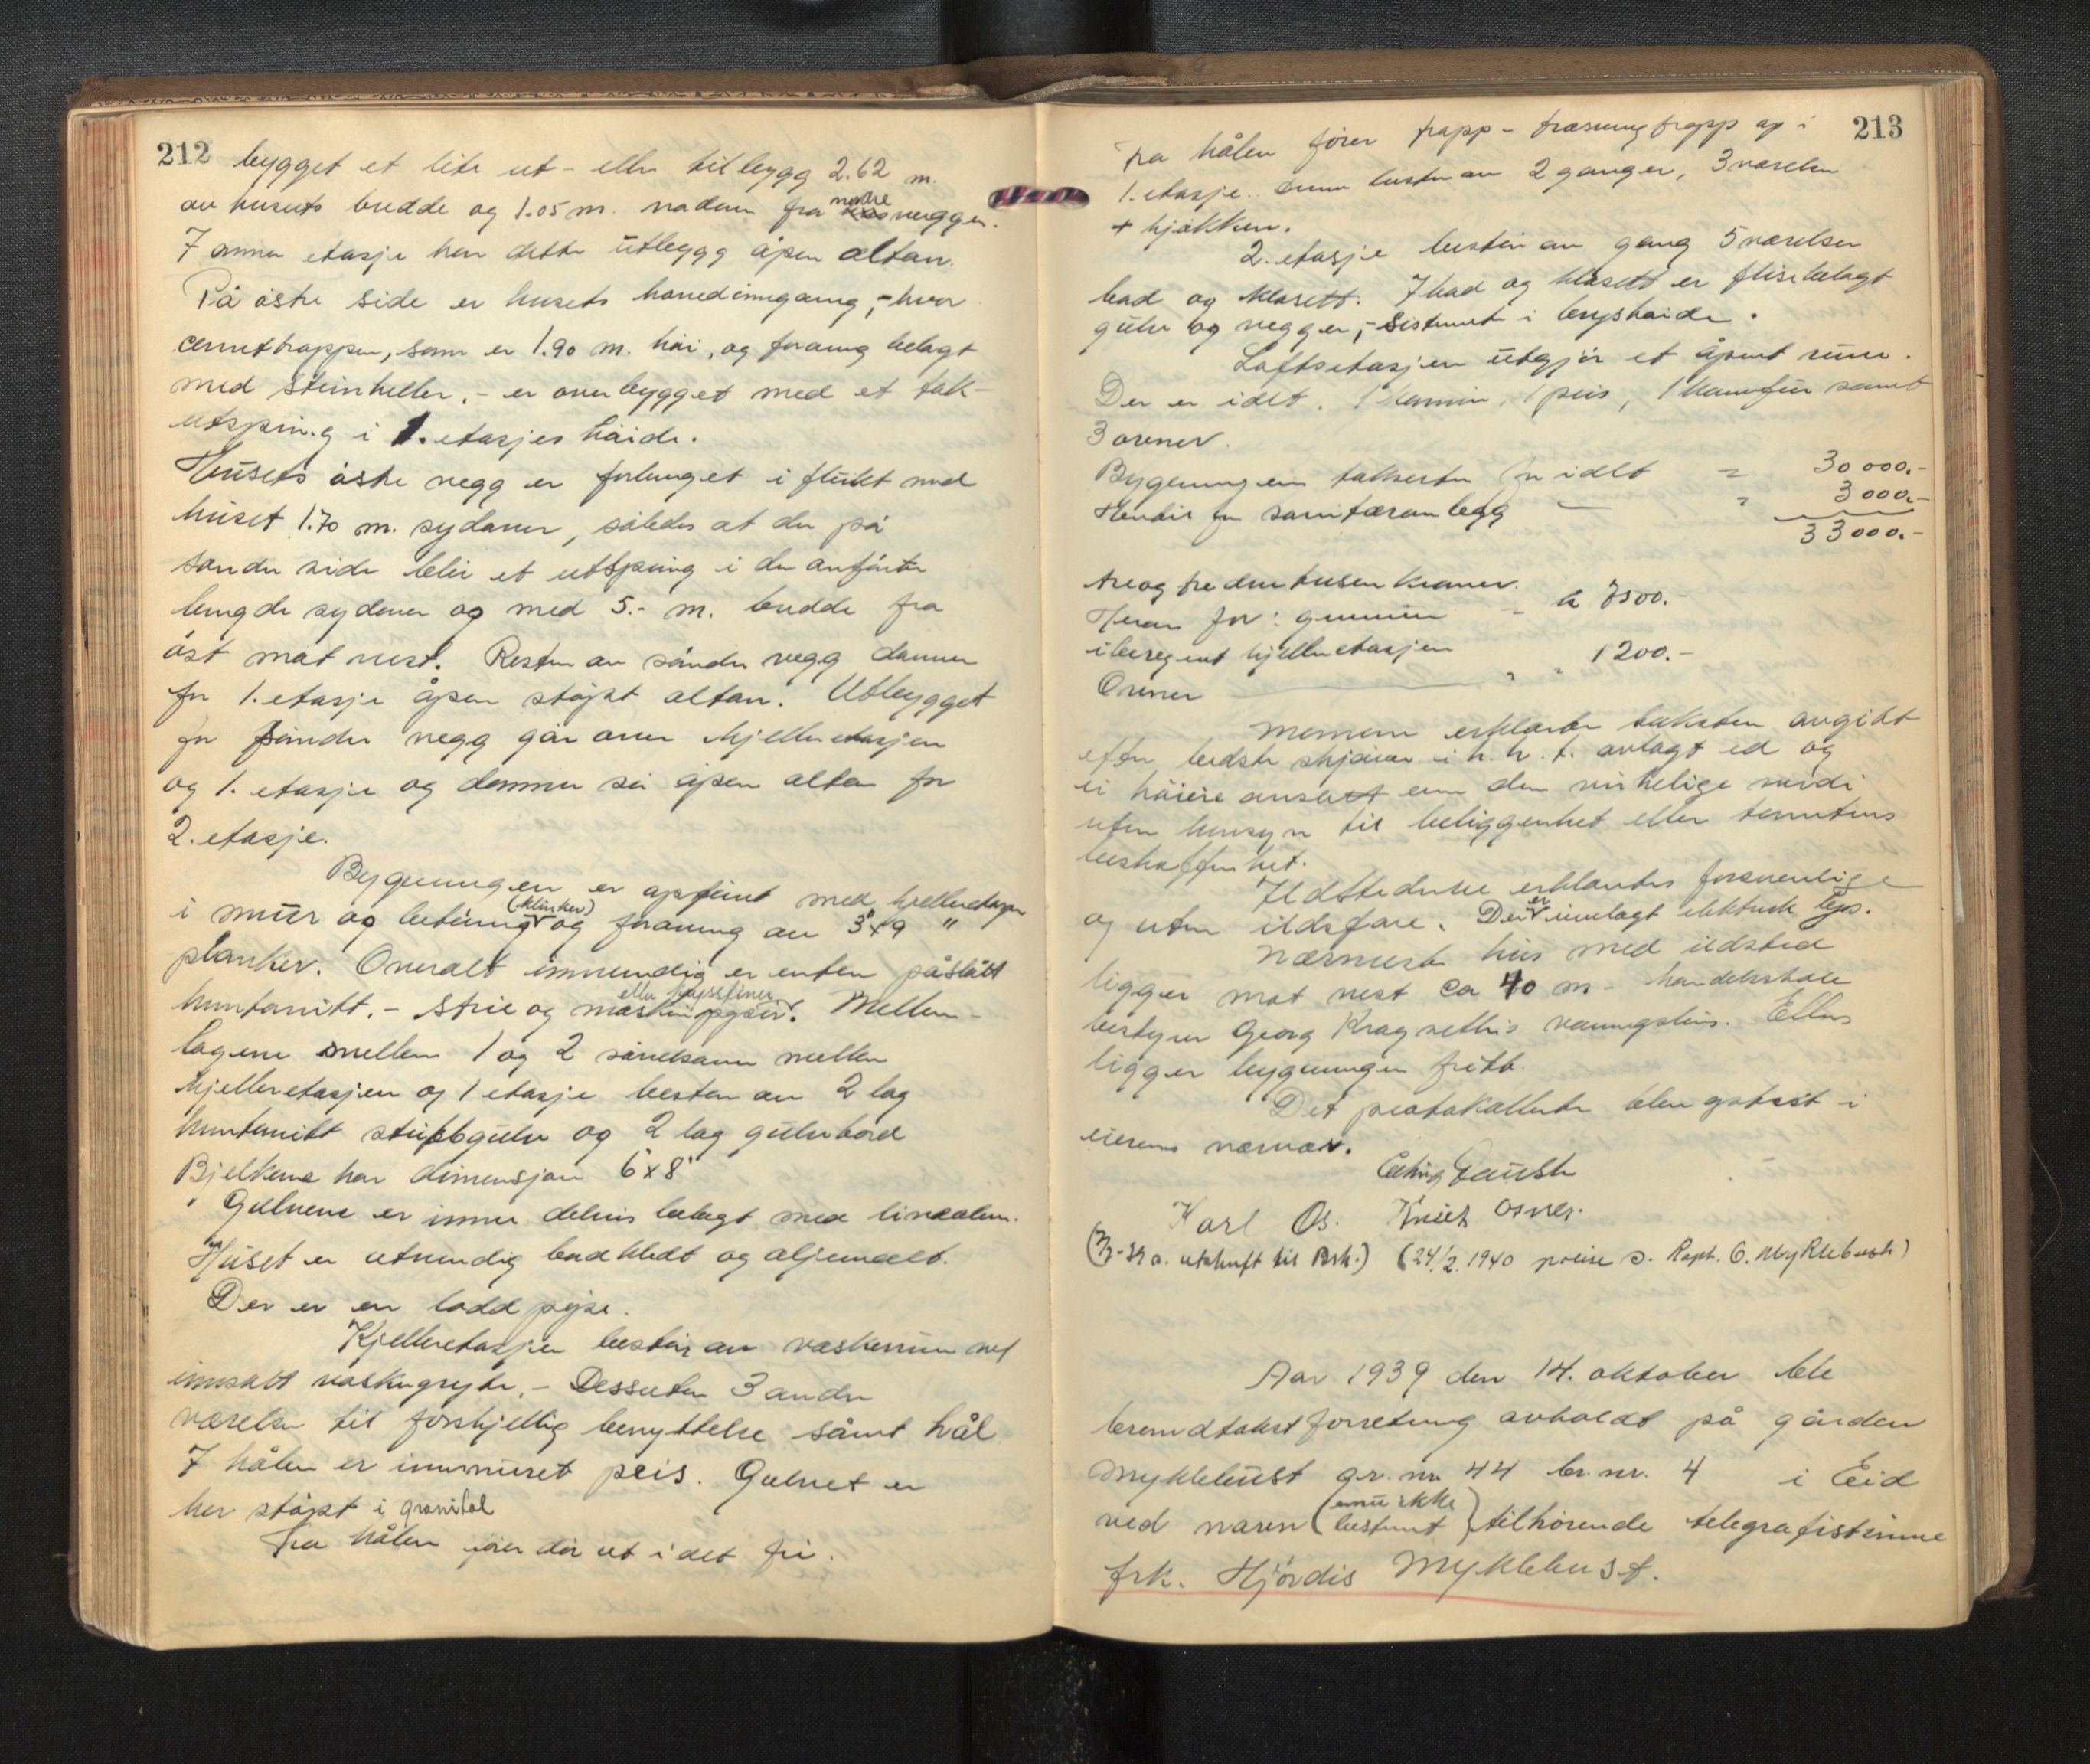 212
bygget et lite ut- eller tilbygg 2.62 m.
av husets bredde og 1.05 m. nadenu fra nordre veggen.
I annen etasje har dette utbygg åpen altan.
På østre side er husets hovedinngang, - hvor
cementtrappen, som er 1.90 m. høi, og forøvrig belagt
med steinheller, - er overbygget med et tak-
utspring i 1. etasjes høide.
Husets østre vegg er forlenget i flukt med
huset 1.70 m. sydover, således at der på
søndre side blir et utspring i den anførte
lengde sydover og med 5.- m. bredde fra
øst mot vest. Resten av søndre vegg danner
for 1. etasje åpen støpt altan. Utbygget
for søndre vegg går over kjelleretasjen
og 1. etasje og danner så åpen altan for
2. etasje.
Bygningen er opført med kjelleretasje
i mur og betong (klinker) og forøvrig av 3"x9"
planker. Overalt innvendig er enten påslått
huntonitt, - strie og maskinpapir eller kryssfiner. Mellem-
lagene mellem 1 og 2 såvelsom mellem
kjelleretasjen og 1 etasje består av 2 lag
huntonitt stubbgulv og 2 lag gulvbord
Bjelkene har dimensjon 6"x8"
Gulvene er innv. delvis belagt med linoleum.
Huset er utvendig bordkledt og oljemalt.
Der er en lodd pipe.
Kjelleretasjen består av vaskerum med
innsatt vaskegryte, - Dessuten 3 andre
værelser til forskjellig benyttelse samt hål
I hålen er innmuret peis. Gulvet er
her støpt i granitol
Fra hålen fører dør ut i det fri.
213
Fra hålen fører trapp - træsving trapp op i
1. etasje. Denne består av 2 ganger, 3 værelser
+ kjøkken.
2. etasje består av gang 5 værelser
bad og klosett. I bad og klosett er flisebelagt
gulv og vegger, - sistnevnte i brysthøide.
Loftsetasjen utgjør et åpent rum.
Der er idlt. 1 kamin, 1 peis, 1 komfur samt
3 ovner.
Bygningen taksertes for idlt = 30 000.-
Herav for sanitæranlegg - " 3 000.-
33 000.-
tre og tredve tusen kroner.
Herav for: grunnmur
iberegnet kjelleretasjen " kr 7500.-
Ovner " " 1200.-
Mennene erklærte taksten avgitt
efter bedste skjønn i h. h. t. avlagt ed og
ei høiere ansatt enn den virkelige verdi
uten hensyn til beliggenhet eller tomtens
beskaffenhet.
Ildstedene erklærtes forsvarlige
og uten ildsfare. Der er innlagt elektrisk lys.
Nærmeste hus med ildsted
ligger mot vest ca 40 m - handelsskole
bestyrer Georg Kragseths våningshus. Ellers
ligger bygningen fritt.
Det protokollerte blev opplest i
eierens nærvær.
Karl Os. Knut Osnes.
(24/2. 1940 s. Kapt. O. Myklebust)
Aar 1939 den 14. oktober ble
branndtakstforretning avholdt på gården
Myklebust gr.nr 44 br.nr. 4 i Eid
ved navn (ennu ikke bestemt) tilhørende telegrafistinne
frk. Hjørdis Myklebust.